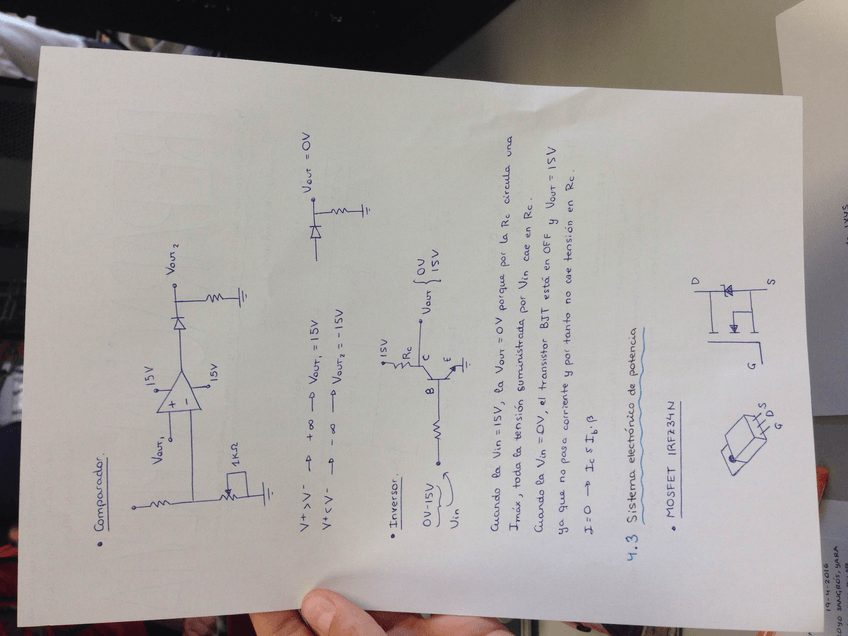 • Comparador.
Vout₁
15V
+
-
15V
Vout₂
1KΩ
V+ > V- → +∞ → Vout₁ = 15V
V+ < V- → -∞ → Vout₂ = -15V
Vout = 0V
• Inversor.
0V-15V
Vin
15V
Rc
B
C
E
Vout { 0V
15V
Cuando la Vin = 15V, la Vout = 0V porque por la Rc circula una
Imáx, toda la tensión suministrada por Vin cae en Rc.
Cuando la Vin = 0V, el transistor BJT está en OFF y Vout = 15V
ya que no pasa corriente y por tanto no cae tensión en Rc.
I = 0 → Ic ≤ Ib·β
4.3 Sistema electrónico de potencia
• MOSFET IRFZ34N
G
D
S
G
D
S
19-4-2016